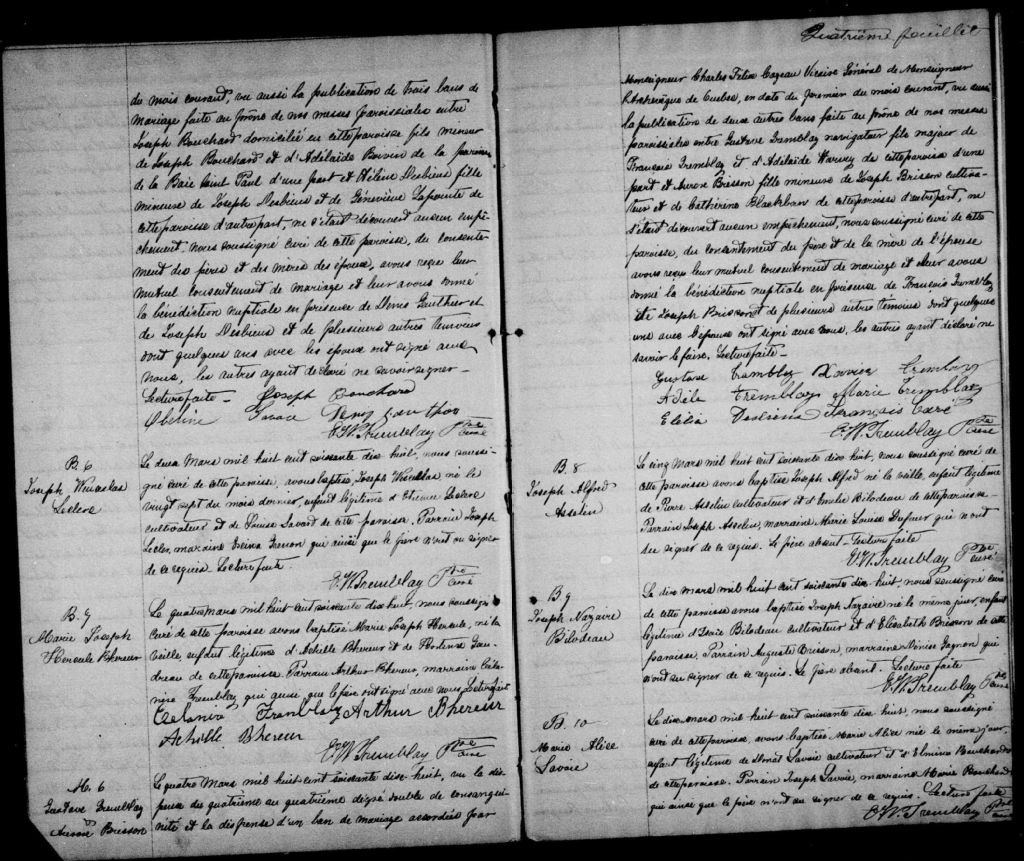 du mois courant, vu aussi la publication de trois bans de
mariage faite au prône de nos messes paroissiales entre
Joseph Bouchard domicilié en cette paroisse fils mineur
de Joseph Bouchard et d'Adélaïde Boivin de la paroisse
de la Baie Saint Paul d'une part et Hélène Desbiens fille
mineure de Joseph Desbiens et de Geneviève Lapointe de
cette paroisse d'autre part, ne s'étant découvert aucun empê-
chement, nous soussigné curé de cette paroisse, du consente-
ment des pères et des mères des époux, avons reçu leur
mutuel consentement de mariage et leur avons donné
la bénédiction nuptiale en présence de Denis Gauthier et
de Joseph Desbiens et de plusieurs autres témoins
dont quelques uns avec les époux ont signé avec
nous, les autres ayant déclaré ne savoir signer.
Lecture faite - Joseph Bouchard
E. W. Tremblay Ptre curé
B. 6
Joseph Wenceslas
Leclerc
Le deux Mars mil huit cent soixante dix huit, nous soussi-
gné curé de cette paroisse, avons baptisé Joseph Wenceslas né le
vingt sept du mois dernier, enfant légitime d'Etienne Leclerc
cultivateur et de Louise Savard de cette paroisse. Parrain Joseph
Leclerc, marraine qui ainsi que le père n'ont su signer
de ce requis. Lecture faite.
E. W. Tremblay Ptre curé
B. 7
Marie Joseph
Hercule Bhereur
Le quatre mars mil huit cent soixante dix huit, nous soussigné
curé de cette paroisse avons baptisé Marie Joseph Hercule, né la
veille, enfant légitime d'Achille Bhereur et de Hortense Gau-
dreau de cette paroisse. Parrain Arthur Bhereur, marraine
Tremblay qui ainsi que le père ont signé avec nous. Lecture faite
Tremblay Arthur Bhereur
Achille Bhereur
E. W. Tremblay Ptre curé
M. 6
Gustave Tremblay
&
Aurore Brisson
Le quatre Mars mil huit cent soixante dix-huit, vu la dis-
pense du quatrième au quatrième degré double de consangui-
nité et la dispense d'un ban de mariage accordées par
Quatrième feuillet
Monseigneur Charles Félix Cazeau Vicaire Général de Monseigneur
l'Archevêque de Québec, en date du premier du mois courant, vu aussi
la publication de deux autres bans faite au prône de nos messes
paroissiales entre Gustave Tremblay navigateur fils majeur de
François Tremblay et d'Adélaïde Harvey de cette paroisse d'une
part et Aurore Brisson fille mineure de Joseph Brisson cultiva-
teur et de Cathérine Blackburn de cette paroisse d'autre part, ne
s'étant découvert aucun empêchement, nous soussigné curé de cette
paroisse, du consentement du père et de la mère de l'épouse
avons reçu leur mutuel consentement de mariage et leur avons
donné la bénédiction nuptiale en présence de François Tremblay
et de Joseph Brisson et de plusieurs autres témoins dont quelques
uns avec l'épouse ont signé avec nous, les autres ayant déclaré ne
savoir le faire. Lecture faite -
Gustave Tremblay Xavier Tremblay
Adèle Tremblay Marie Tremblay
François
E. W. Tremblay Ptre curé
B. 8
Joseph Alfred
Asselin
Le cinq Mars mil huit cent soixante dix huit, nous soussigné curé de
cette paroisse avons baptisé Joseph Alfred né la veille, enfant légitime
de Pierre Asselin cultivateur et d'Emilie Bilodeau de cette paroisse.
Parrain Joseph Asselin, marraine Marie Louise Dufour qui n'ont
su signer de ce requis. Le père absent. Lecture faite
E. W. Tremblay Ptre curé
B 9
Joseph Nazaire
Bilodeau
Le dix mars mil huit cent soixante dix huit, nous soussigné curé
de cette paroisse avons baptisé Joseph Nazaire né le même jour, enfant
légitime d'Isaïe Bilodeau cultivateur et d'Elisabeth Brisson de cette
paroisse. Parrain Auguste Brisson, marraine Denise Gagnon qui
n'ont su signer de ce requis. Le père absent. Lecture faite
E. W. Tremblay Ptre curé
B. 10
Marie Alice
Savoie
Le dix mars mil huit cent soixante dix huit, nous soussigné
curé de cette paroisse, avons baptisé Marie Alice née le même jour,
enfant légitime de Savoie cultivateur et d'Elmina Bouchard
de cette paroisse. Parrain Joseph Savoie, marraine Marie Bouchard
qui ainsi que le père n'ont su signer de ce requis. Lecture faite
E. W. Tremblay Ptre curé